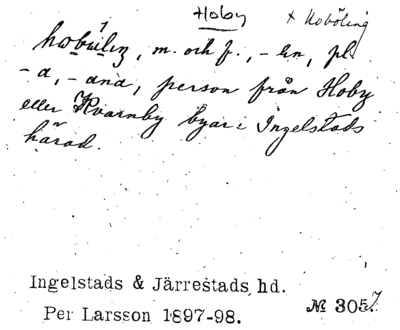 Hoby
x Hoböling
hobúling, m. och f., -en, pl.
-a, -ana, person från Hoby
eller Kvarnby byar i Ingelstads
härad.
Ingelstads & Järrestads hd.
Per Larsson 1897-98.
№ 3057.